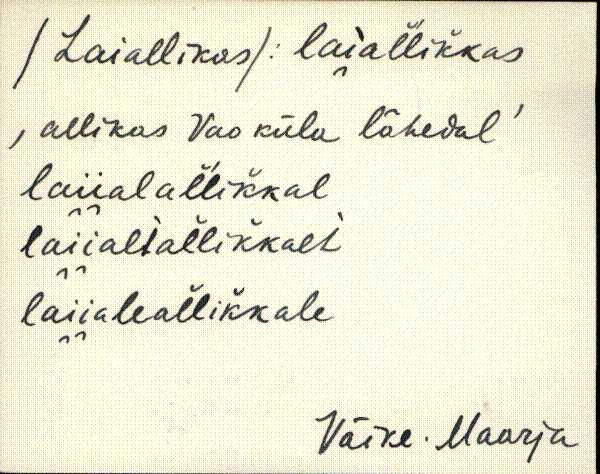 /Laiallikas/: lai̯al̆likkas
‚ allikas Vao küla lähedal ’
lai̯i̯alal̆likkal
lai̯i̯alt̀al̆likkalt̀
lai̯i̯aleal̆likkale
Väike-Maarja